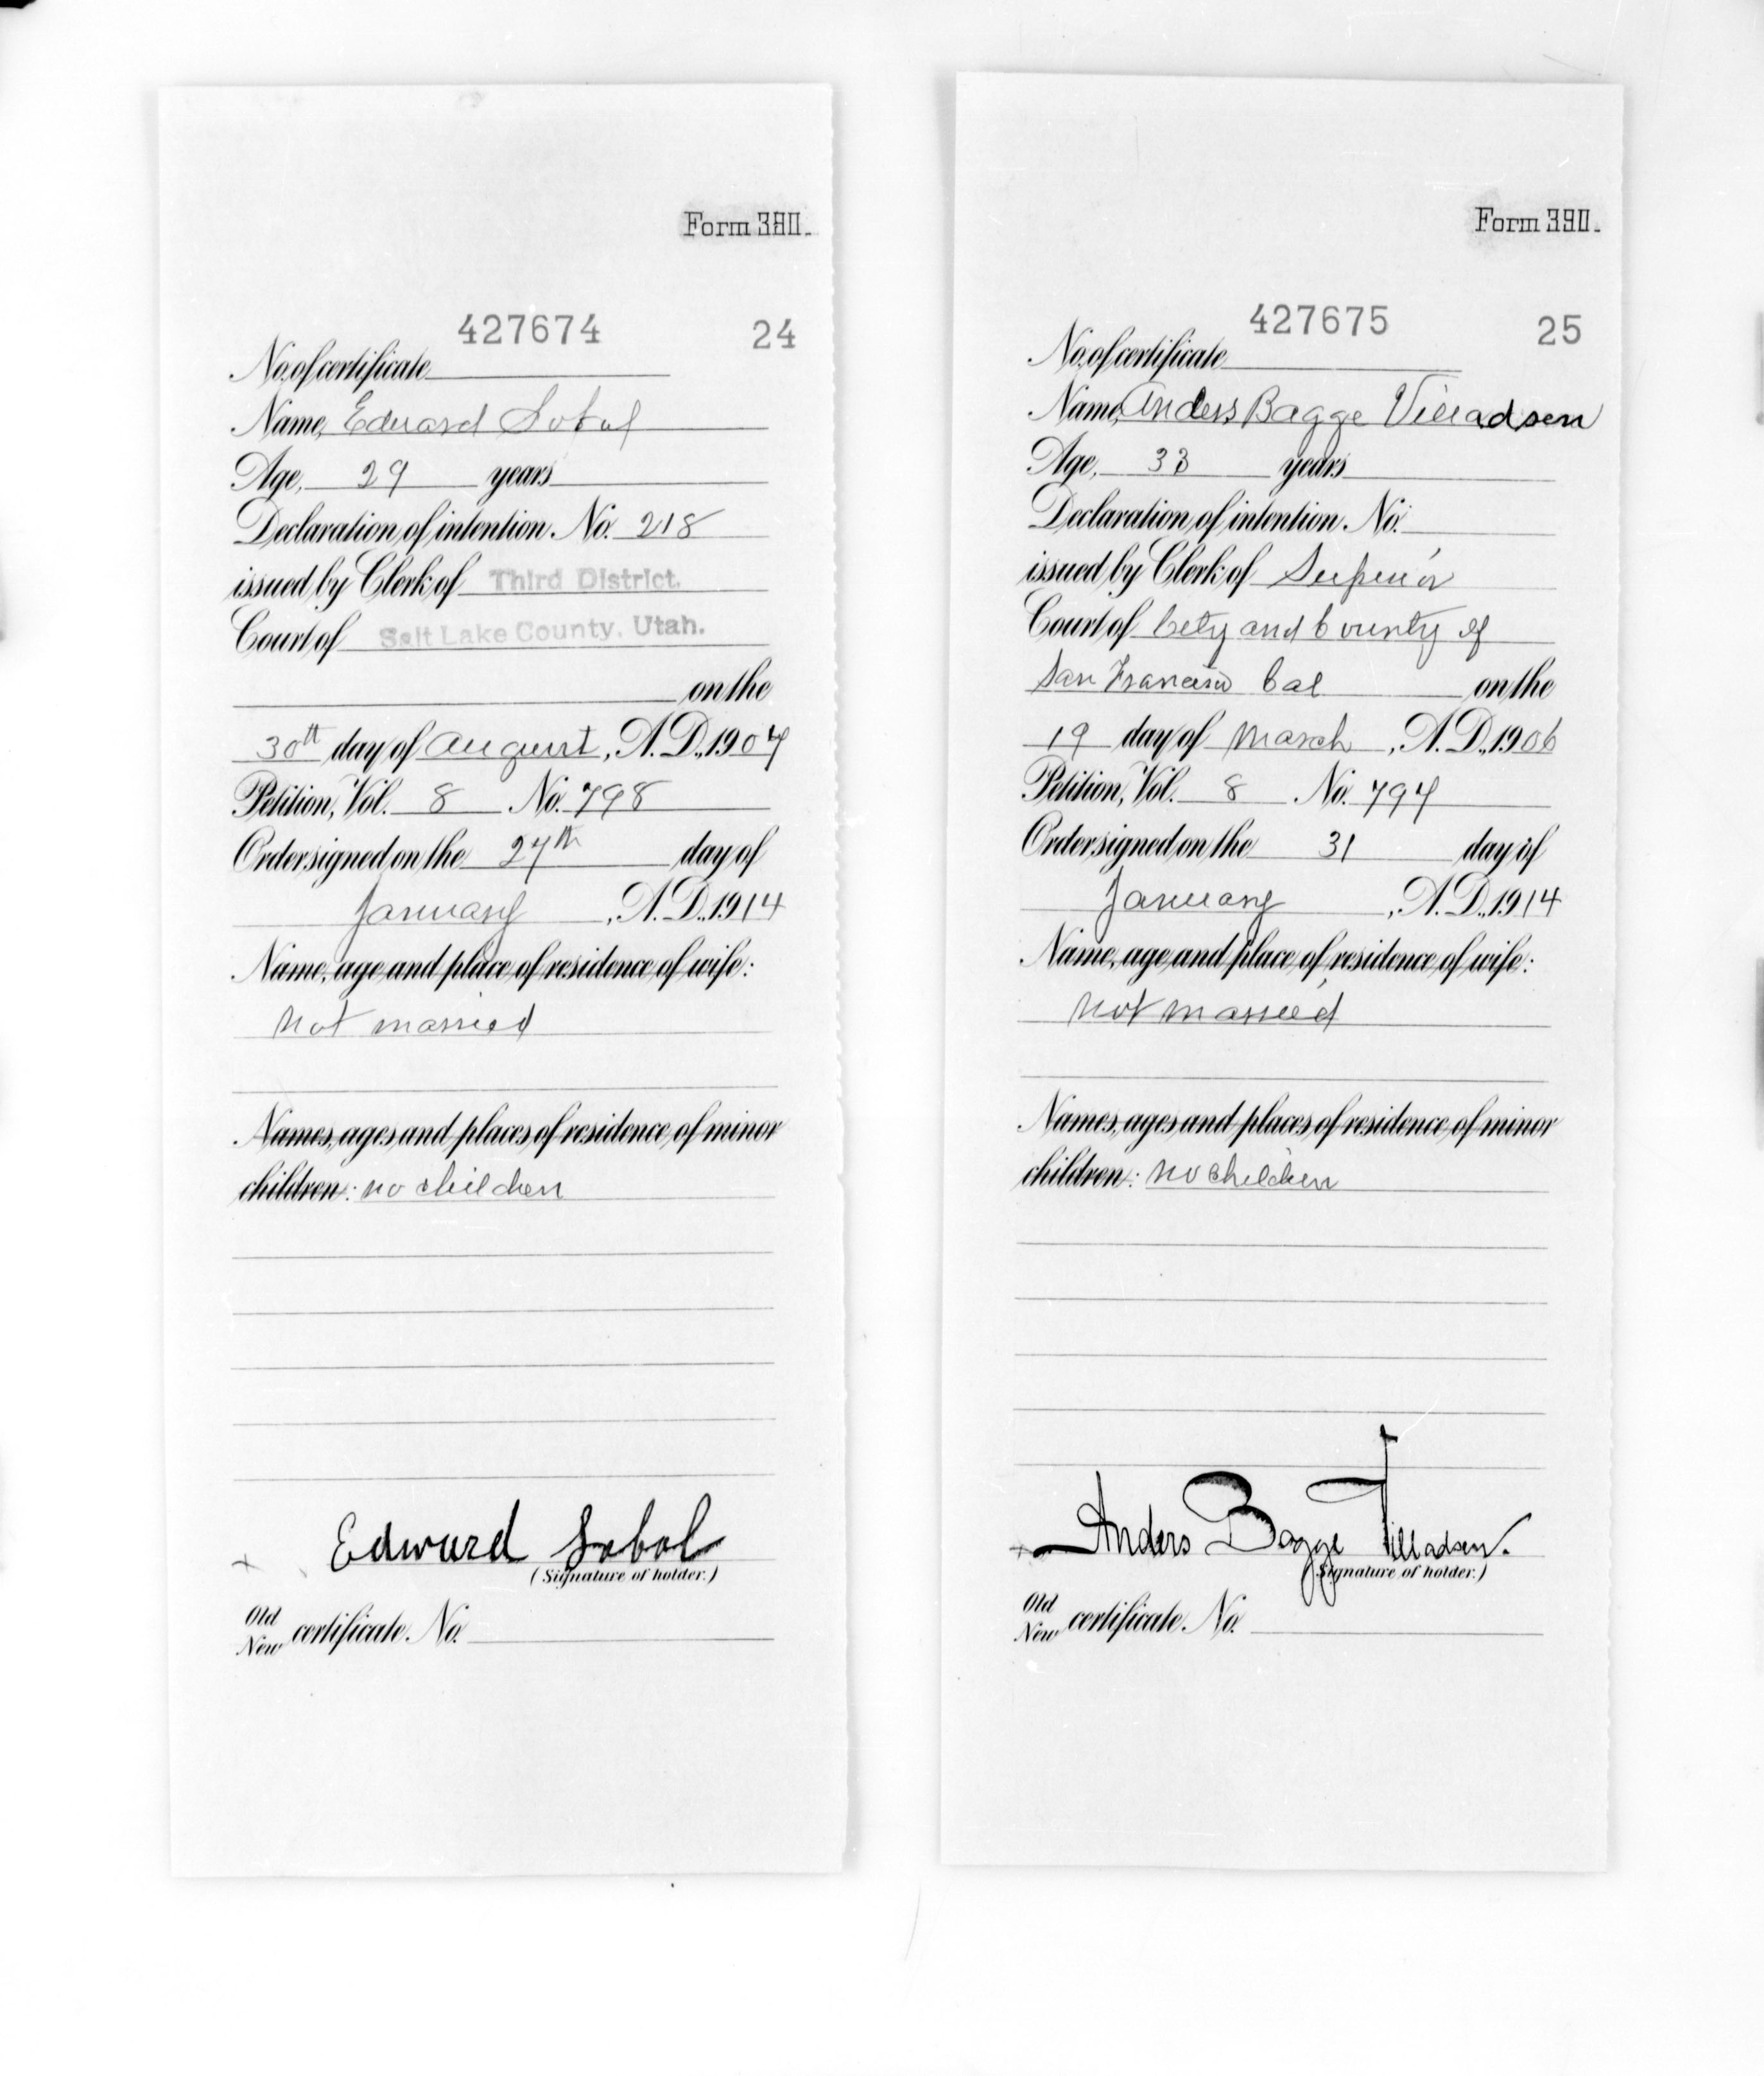 Form 380.
427674 24
No. of certificate
Name, Edward Sobol
Age, 29 years
Declaration of intention. No. 218
issued by Clerk of Third District.
Court of Salt Lake County, Utah.
on the
30th day of August, A. D., 1907
Petition, Vol. 8 No. 798
Order signed on the 27th day of
January, A. D., 1914
Name, age and place of residence of wife:
not married
Names, ages and places of residence of minor
children: no children
Edward Sobol
(Signature of holder.)
Old
New certificate. No.
Form 390.
427675 25
No. of certificate
Name, Anders Bagge Villadsen
Age, 33 years
Declaration of intention. No.
issued by Clerk of Superior
Court of City and County of
San Francisco Cal on the
19 day of March, A. D., 1906
Petition, Vol. 8 No. 794
Order signed on the 31 day of
January, A. D., 1914
Name, age and place of residence of wife:
not married
Names, ages and places of residence of minor
children: no children
Anders Bagge Villadsen.
(Signature of holder.)
Old
New certificate. No.